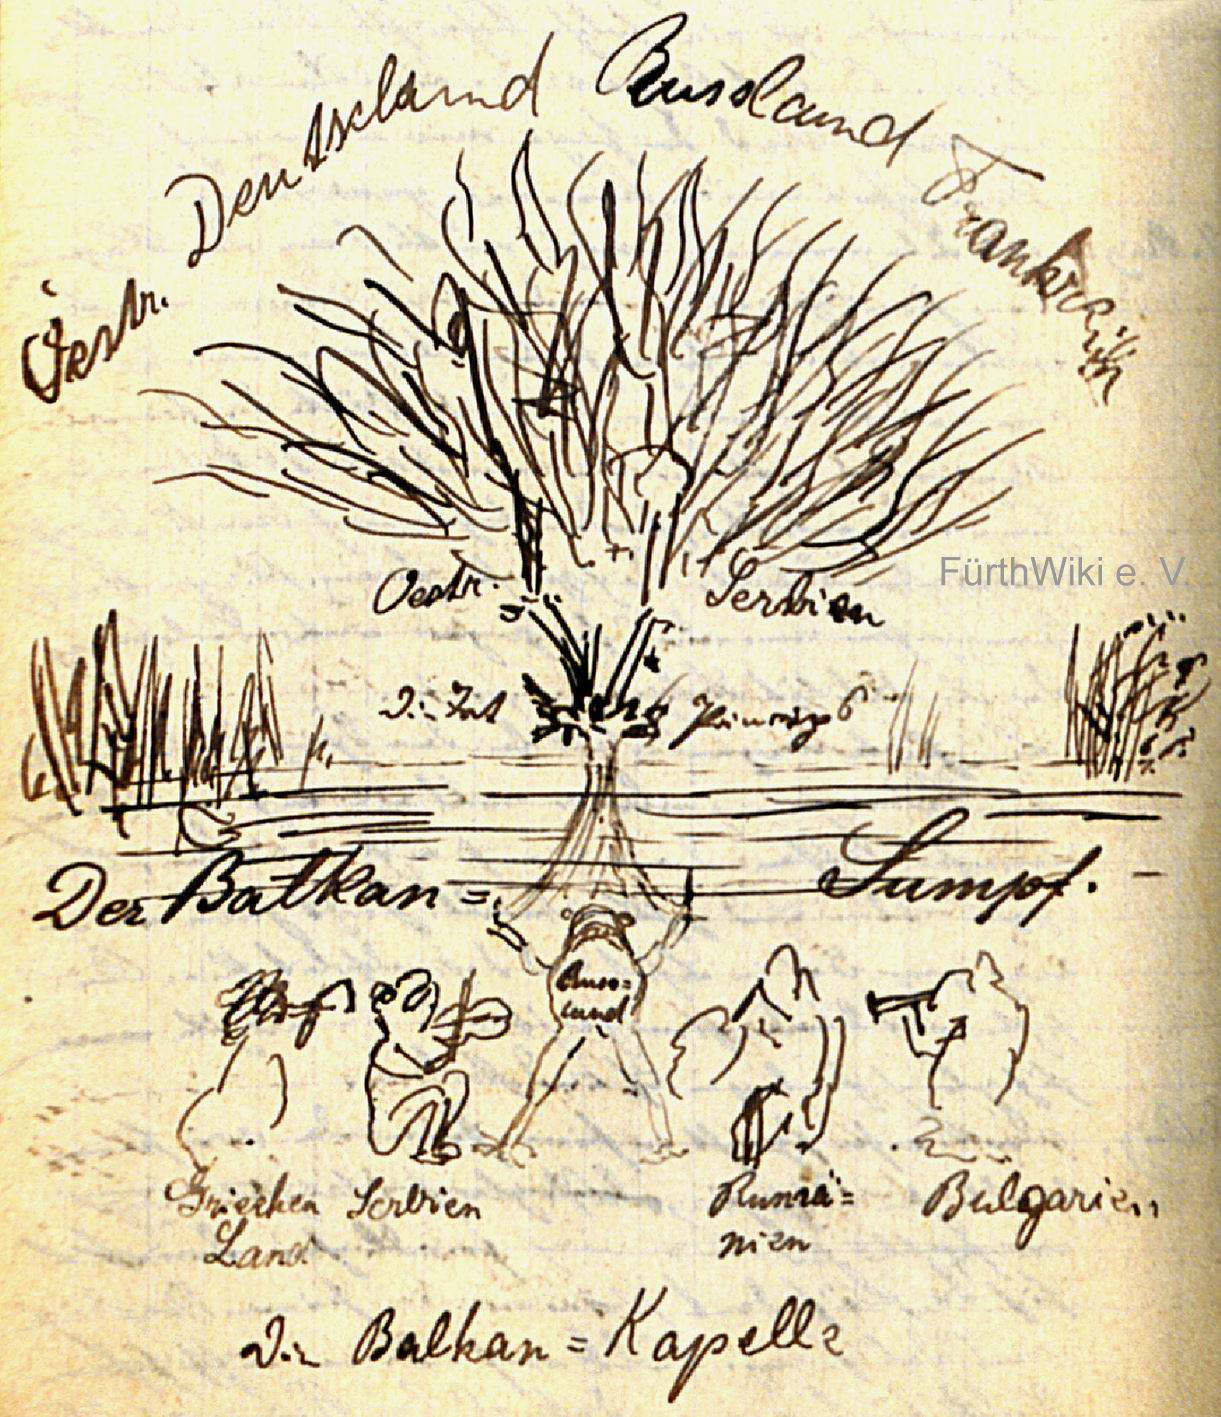 Oestr. Deutschland Russland Frankreich
FürthWiki e. V.
Oestr. Serbien
Die Tat Prinzips
Der Balkan = Sumpf.
Russ=
land
Griechen Land
Serbien
Rumä=
nien
Bulgarien
Die Balkan = Kapelle